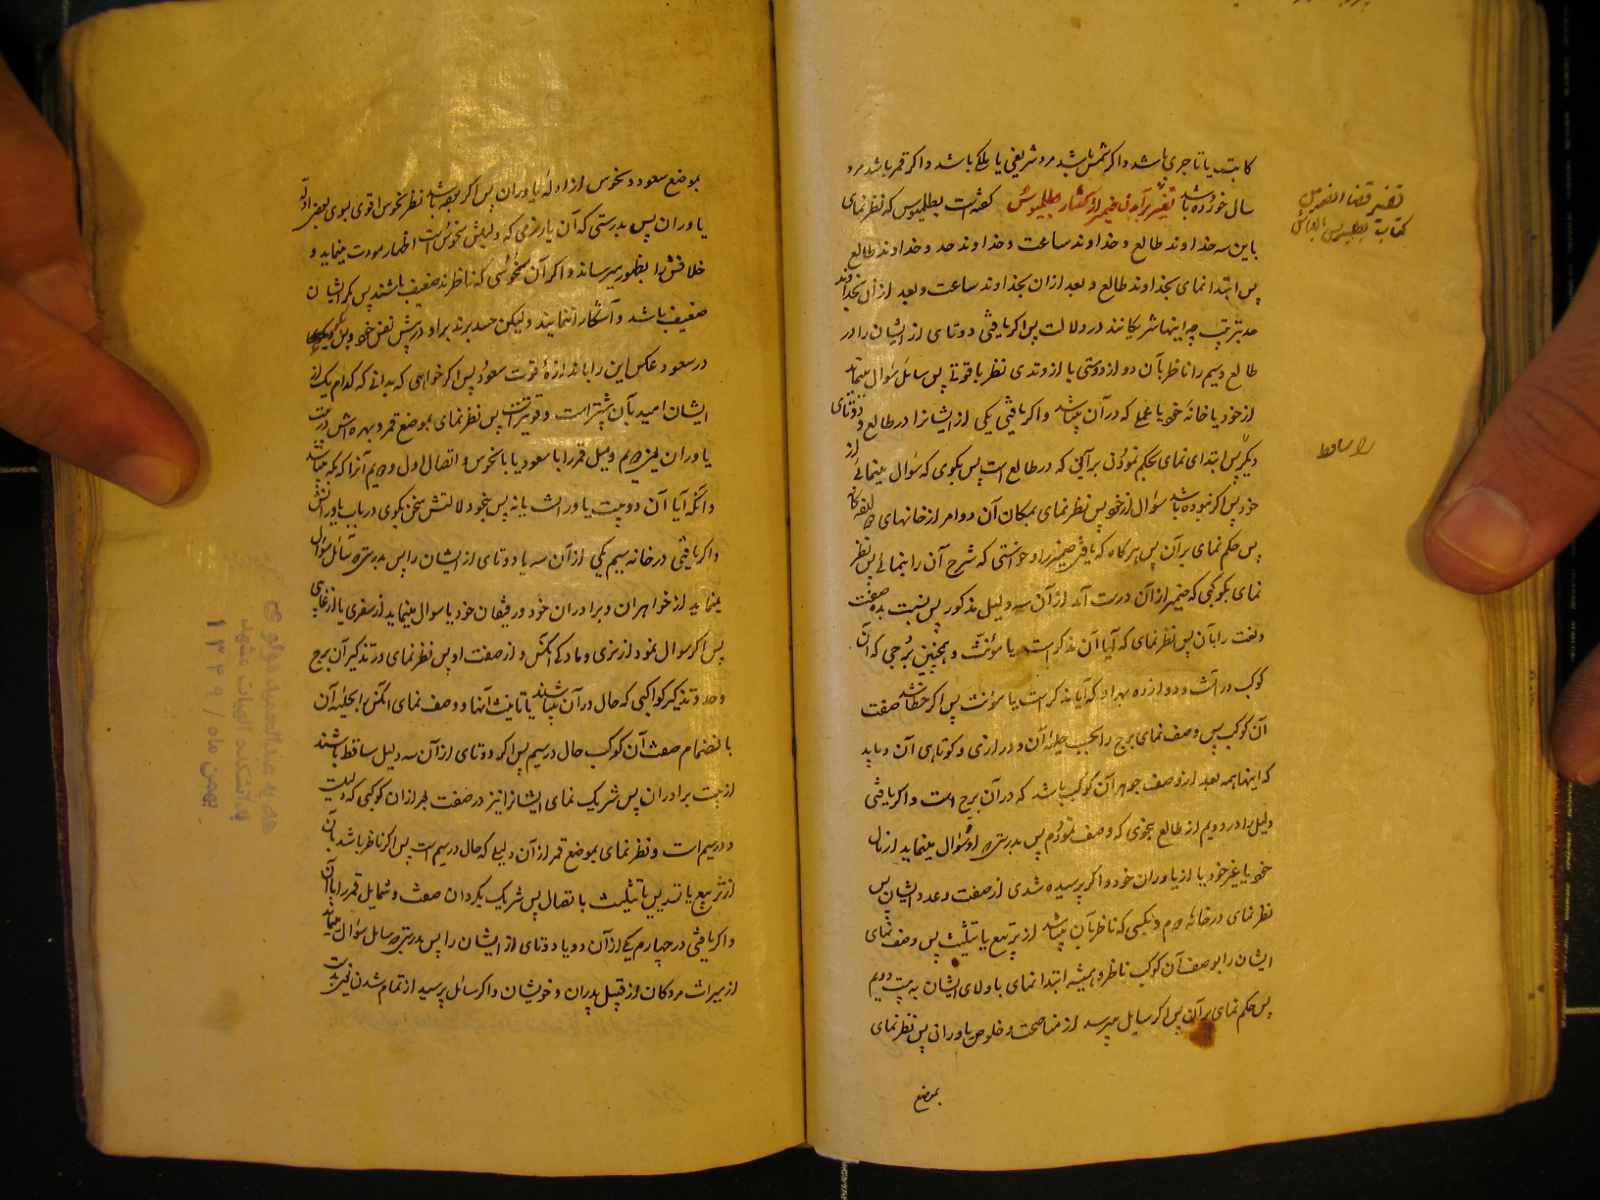 کاتب یا تاجری باشد و اگر شمس باشد مرد شریفی یا ملکی باشد و اگر قمر باشد مرد
سال خورده باشد تفسیر برآمدن ضمیر از گفتار بطلمیوس گفته است بطلمیوس که نظر نمای
باین سه خداوند طالع و خداوند ساعت و خداوند حد و خداوند طالع
پس ابتدا نمای بخداوند طالع و بعد از ان بخداوند ساعت و بعد از آن بخداوند
حد بترتیب چه اینها شریکانند در دلالت پس اگر یافتی دوتای از ایشان را در
طالع و سیم را ناظر بآن دو از دوستی یا از وتدی نظر باقوتی پس سائل سؤال مینماید
از خود یا خانهٔ خود یا عملی که در آن باشد و اگر یافتی یکی از ایشانرا در طالع و دوتای
دیگر پس ابتدای نمای بحکم نمودن برآنی که در طالع است پس بگوی که سؤال مینمائی از
خود پس اگر نبوده باشد سؤال از خود پس نظر نمای بمکان آن دو امر از خانهای
پس حکم نمای بر آن پس هر گاه که یافتی ضمیر را و خواستی که شرح آن را بنمائی پس نظر
نمای بکوکبی که ضمیر از آن درست آمد از آن سه دلیل مذکور پس نسبت بده صفت
و نعت را بآن پس نظر نمای که آیا آن مذکر است یا مؤنث و همچنین برجی که آن
کوکب در آنست و دوازده بهر او که آیا مذکر است یا مؤنث پس اگر صفت
آن کوکب پس وصف نمای برج را بحسب حلیهٔ آن و درازی و کوتاهی آن و باید
که اینها همه بعد از وصف جوهر آن کوکب باشد که در آن برج است و اگر یافتی
دلیل را در دویم از طالع بنحوی که وصف نمودم پس بدرستی که او سؤال مینماید از مال
خود یا غیر خود یا از یاوران خود و اگر پرسیده شدی از صفت و عدد ایشان پس
نظر نمای در خانهٔ دویم و بکسی که ناظر بآن باشد از تربیع یا تثلیث پس وصف نمای
ایشان را بوصف آن کوکب ناظر و همیشه ابتدا نمای باولای ایشان به بیت دویم
پس حکم نمای بر آن پس اگر سایل بپرسد از مناصحت و خلوص یاوران پس نظر نمای
بموضع
بموضع سعود و نحوس از اداء یاوران پس اگر بوده باشد نظر نحوس اقوی بسوی بعض
یاوران پس بدرستی که آن یاورمی که دلیلش نحوس است اظهار مودت مینماید و
خلافش را بظهور میرساند و اگر آن نحوسی که ناظرند ضعیف باشند پس مکر ایشان
ضعیف باشد و آشکارا ننمایند ولیکن حسد برند بر او در پیش نفس خود
در سعود عکس این را باندازهٔ قوت سعود پس اگر خواهی که بدانی که کدام یک از
ایشان امید بآن بیشتر است و قویترند پس نظر نمای بموضع قمر و بهره اش در بیت
یاوران یعنی دویم و میل قمر را با سعود یا با نحوس و اتصال اول و دویم آنرا که بچه باشد
و آنکه آیا آن دو بیت یاوران است یا نه پس بنحو دلالتش سخن بگوی در باب یاورانش
و اگر یافتی در خانه سیم یکی از آن سه یا دوتای از ایشان را پس بدرستی که سائل سؤال
مینماید از خواهران و برادران خود و رفیقان خود یا سوال مینماید از سفری یا از غایبی
پس اگر سوال نمود از نری و مادگی آنکس و از صفت او پس نظر نمای در تذکیر آن برج
و حد و تذکیر کواکبی که حال در آن باشند یا تانیث آنها و وصف نمای آنکس را بحلیهٔ آن
با انضمام صفت آن کوکب حال در سیم پس اگر دوتای از آن سه دلیل ساقط باشند
از بیت برادران پس شریک نمای ایشانرا نیز در صفت بجز از ان کوکبی که دلیلست
و در سیم است و نظر نمای بموضع قمر از آن دلیلی که حال در سیم است پس اگر ناظر باشد بآن
از تربیع یا تسدیس یا تثلیث یا اتصال پس شریک بگردان صفت و شمایل قمر را با آن
و اگر یافتی در چهارم یکی از آن دو یا دوتای از ایشان را پس بدرستی که سایل سؤال مینماید
از میراث مردگان و از قبیل پدران و خویشان و اگر سائل پرسید از تمام شدن
تفسیر قضا الضمیر
کتاب بطلمیوس
۱۳۴۹
بهمن ماه